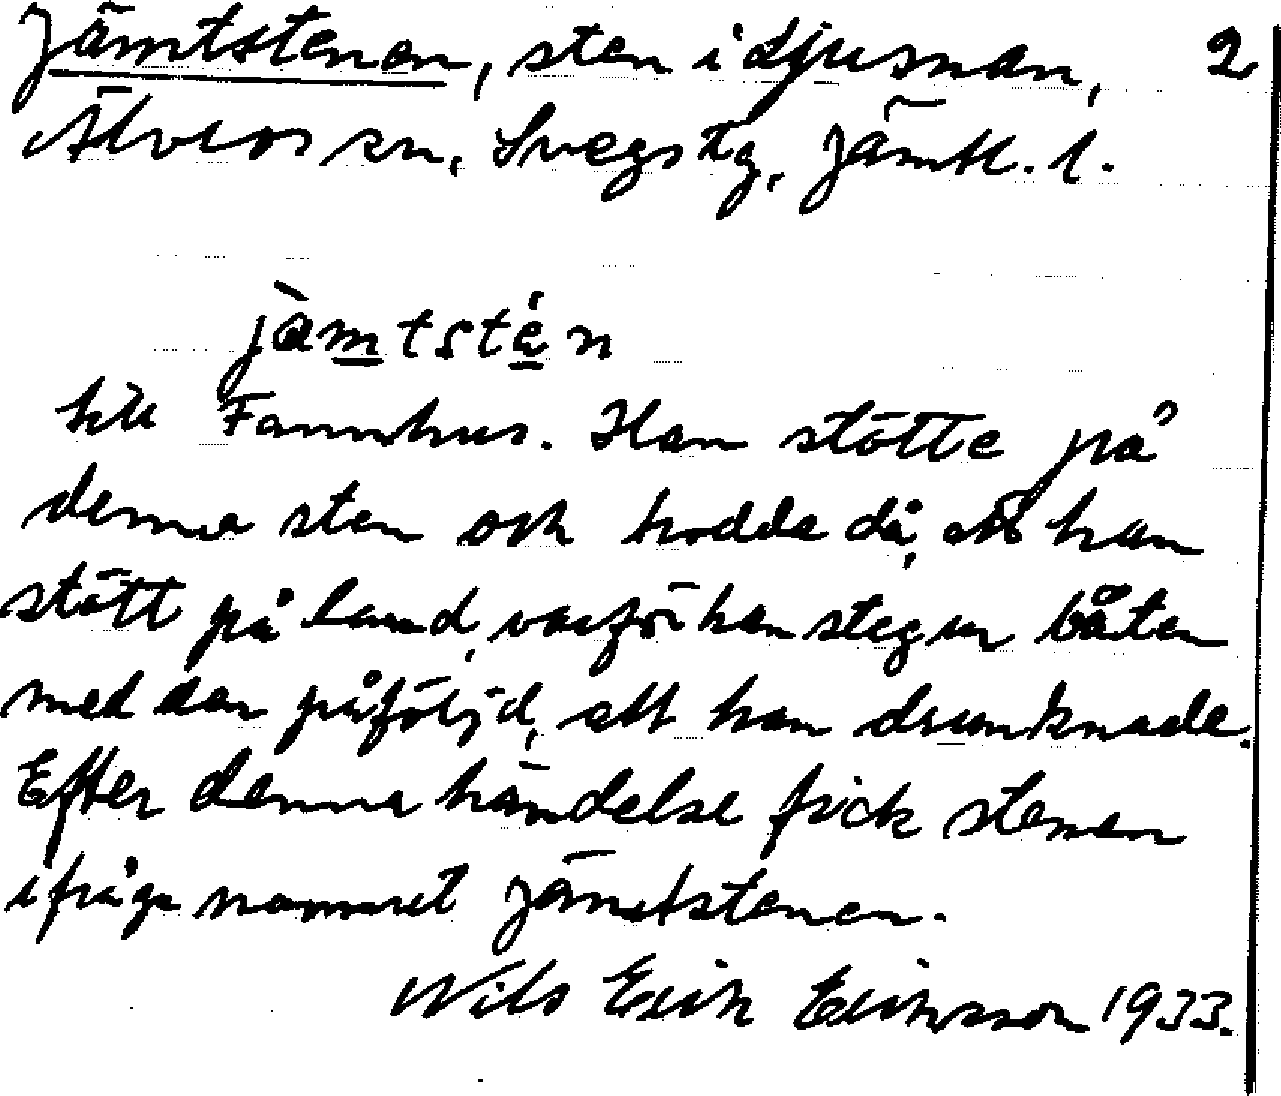 Jämtstenen, sten i Ljusnan, 2
Älvros sn, Svegs tg, Jämtl. l.
jàmtstén
till Fannhus. Han stötte på
denna sten och trodde då, att han
stött på land, varför han steg ur båten
med den påföljd, att han drunknade.
Efter denna händelse fick stenen
ifråga namnet Jämtstenen.
Nils Erik Eriksson 1933.